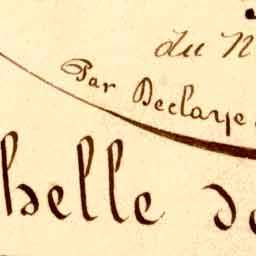 du N
Par Declaye
helle de